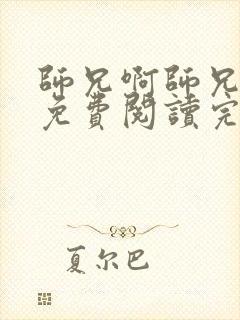 師兄啊師兄
免費閱讀完
夏尔巴